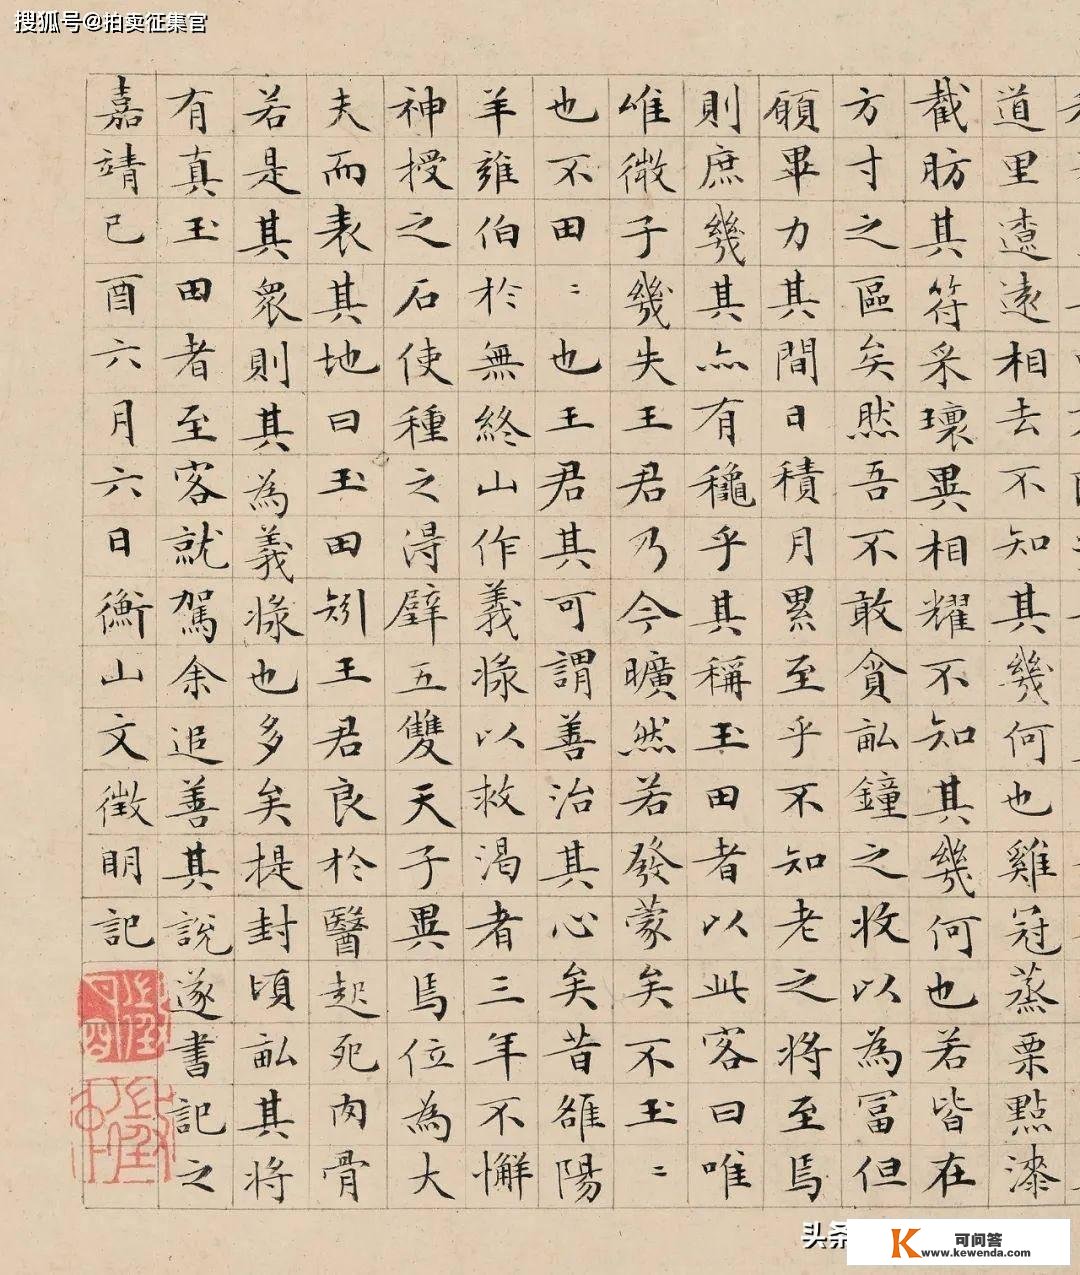 搜狐号@拍卖征集官
道里遼遠相去不知其幾何也雞冠蒸栗點漆
截肪其符采瓌異相耀不知其幾何也若皆在
方寸之區矣然吾不敢貪畝鐘之收以為冨但
願畢力其間日積月累至乎不知老之将至焉
則庶幾其亦有穐乎其稱玉田者以此客曰唯
唯微子幾失王君乃今曠然若發蒙矣不玉〻
也不田〻也王君其可謂善治其心矣昔雒陽
羊雍伯於無終山作義漿以救渴者三年不懈
神授之石使種之得璧五雙天子異焉位為大
夫而表其地曰玉田矧王君良於醫起死肉骨
若是其衆則其為義漿也多矣提封頃畝其将
有真玉田者至客就駕余追善其說遂書記之
嘉靖己酉六月六日衡山文徵明記
头条
K 可问答
www.kewenda.com